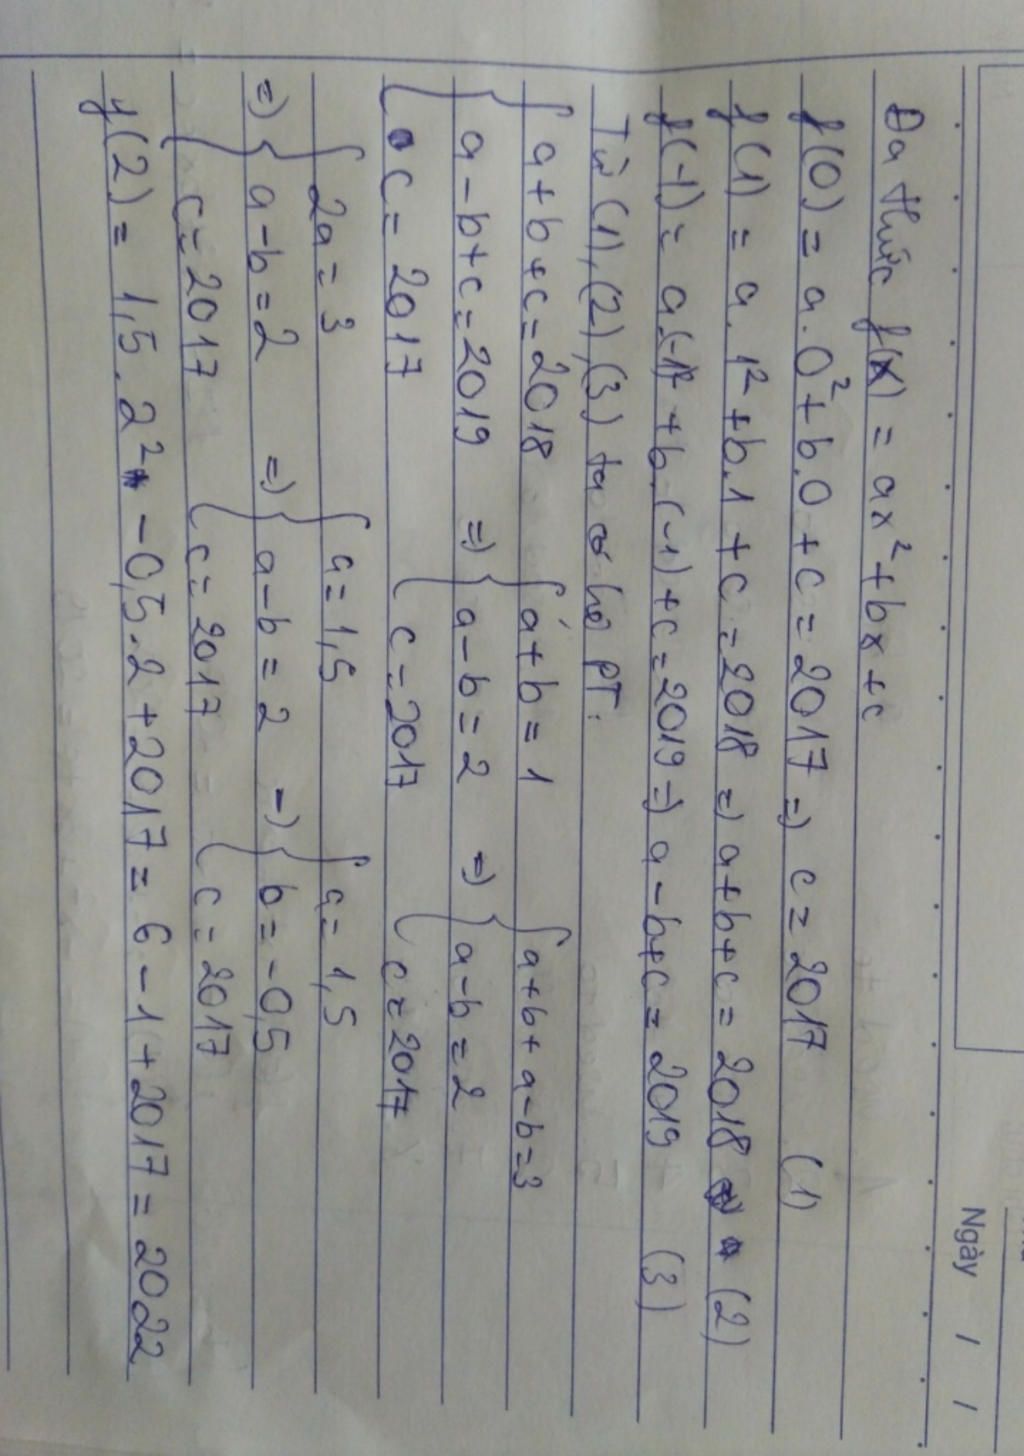 Ngày / /
Đa thức f(x) = ax² + bx + c
f(0) = a.0² + b.0 + c = 2017 => c = 2017 (1)
f(1) = a.1² + b.1 + c = 2018 => a+b+c = 2018 (2)
f(-1) = a(-1)² + b.(-1) + c = 2019 => a-b+c = 2019 (3)
Từ (1), (2), (3) ta có hệ PT:
{ a+b+c = 2018 { a+b = 1 { a+b+a-b=3
{ a-b+c = 2019 => { a-b = 2 => { a-b = 2
{ c = 2017 { c = 2017 { c = 2017
{ 2a = 3 { a = 1,5 { a = 1,5
=> { a-b = 2 => { a-b = 2 => { b = -0,5
{ c = 2017 { c = 2017 { c = 2017
f(2) = 1,5.2² -0,5.2 + 2017 = 6 - 1 + 2017 = 2022